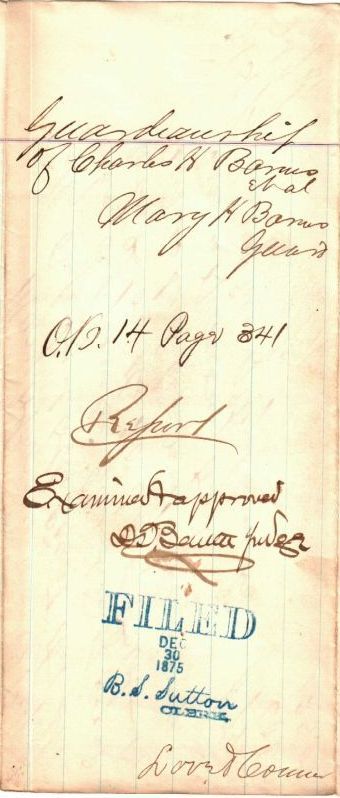 Guardianship
Of Charles H Barns
et al
Mary H Barns
Guard
O.B. 14 Page 341
Report
Examined & approved
Judge
FILED
DEC
30
1875
B. S. Sutton
CLERK.
Love &